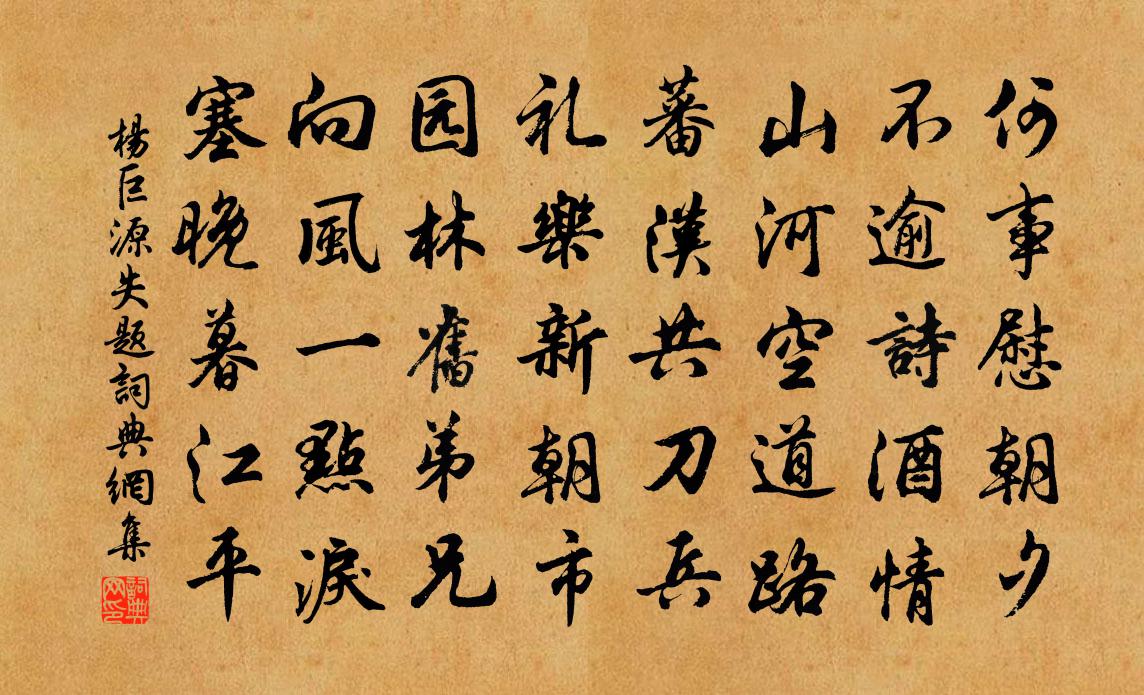 何事慰朝夕
不逾詩酒情
山河空道路
蕃漢共刀兵
礼樂新朝市
园林舊弟兄
向風一點淚
塞晚暮江平
楊巨源失题詞典網集
詞典网印